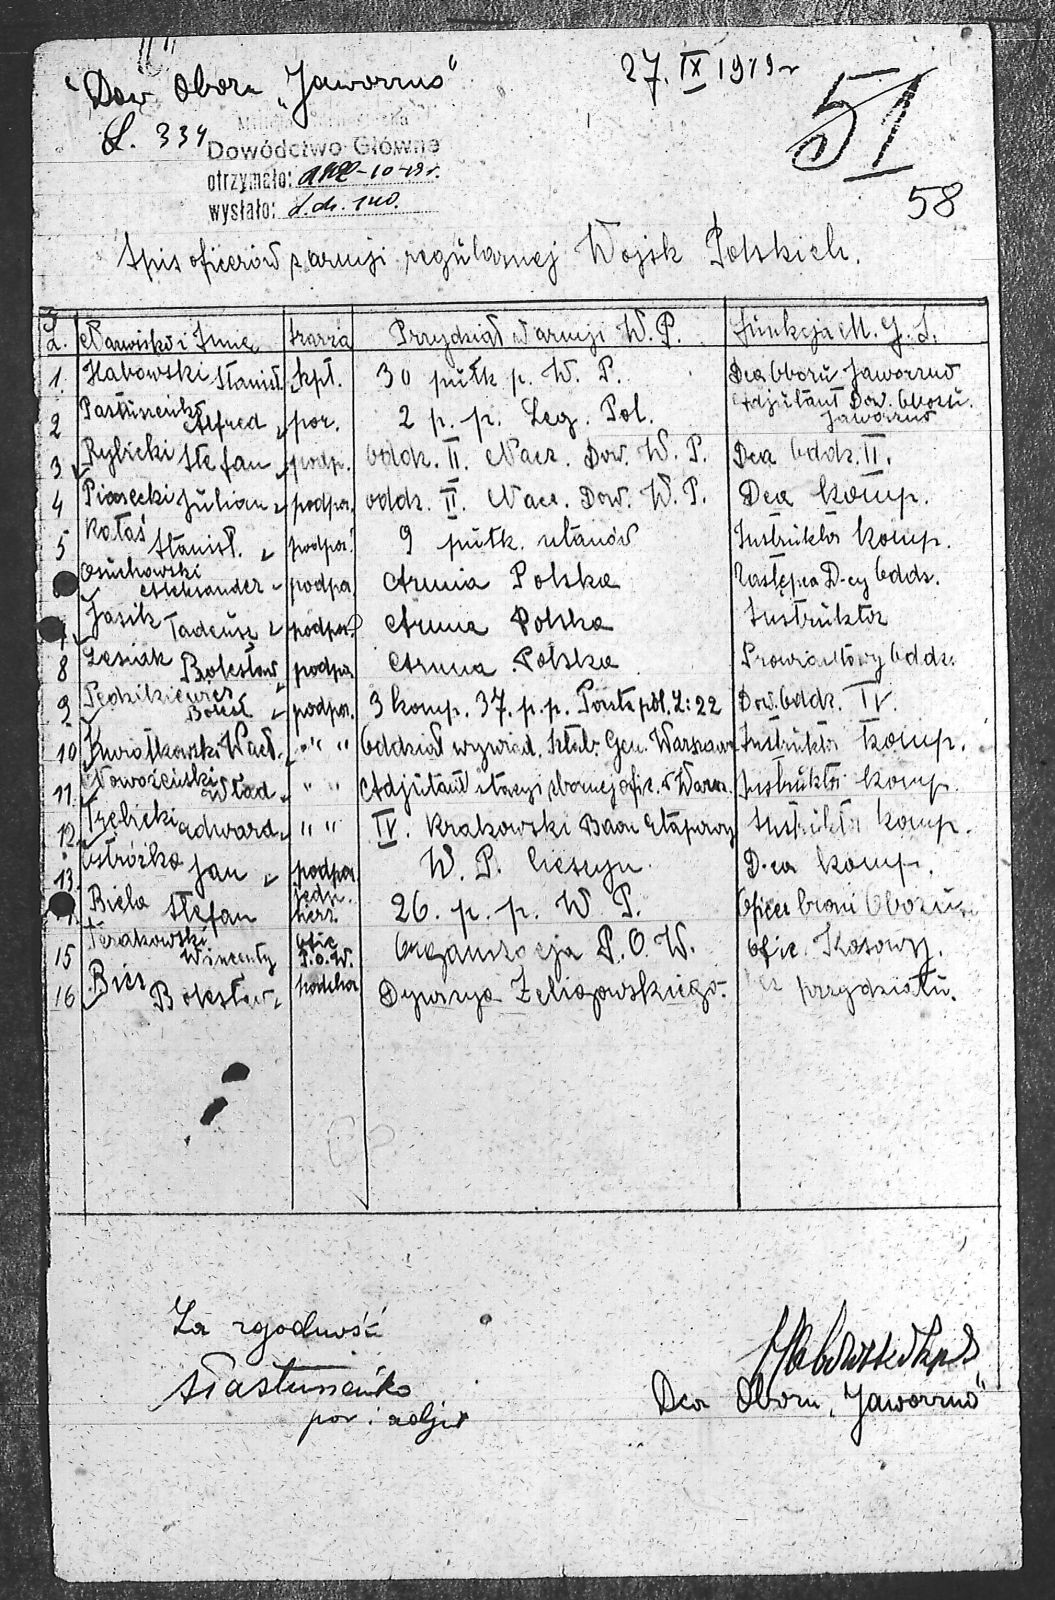 Dow Obozu „Jaworzno"
27. IX 1919 r
L. 334
51
Dowództwo Główne
otrzymało: -10-19 r.
wysłało: L. dz. 140.
58
Spis oficerów z armji regularnej Wojsk Polskich.
L. Nazwisko i Imię Szarża Przydział w armji W. P. Funkcja M. G. S.
1. Habowski Stanisł. kpt. 30 pułk p. W. P. Dca Obozu Jaworzno
2 Pastuneńko Alfred por. 2 p. p. Leg. Pol. Adjutant Dow. Obozu Jaworzno
3 Rybicki Stefan podp. Oddz. II. Nacz. Dow. W. P. Dca Oddz. II.
4 Piasecki Juljan podpor. oddz. II Nacz. Dow. W. P. Dca komp.
5 Kołaś Stanisł. podpor. 9 pułk. ułanów Instruktor komp.
Osuchowski Aleksander podpor. Armia Polska Zastępca D-cy Oddz.
7 Jasik Tadeusz podpor. Armia Polska Instruktor
8 Lesiak Bolesław podpor. Armia Polska Prowiantowy Oddz.
9 podpor. 3 komp. 37. p. p. Poczta pol. L: 22 Dow. Oddz. IV.
10 Kwiatkowski Wacł. " " Oddział wywiad. sztab. Gen. Warszawa Instruktor komp.
11. Władysł. " " Adjutant stacyi zbornej ofic. w Warsz. Instruktor komp.
12. Trębicki Edward " " IV. Krakowski Baon Etapowy Instruktor komp.
13. Ostróżka Jan podpor. W. P. Cieszyn. D-ca komp.
Biela Stefan 26. p. p. W P. Oficer broni Obozu
15 Terakowski Wincenty Ofic P.O.W. Organizacja P. O. W. ofic. Kasowy.
16 Bies Bolesław podchor Dywizya Żeligowskiego. bez przydziału.
Za zgodność
Pastuneńko
por. i adjut
Habowski kpt
Dca Obozu „Jaworzno"